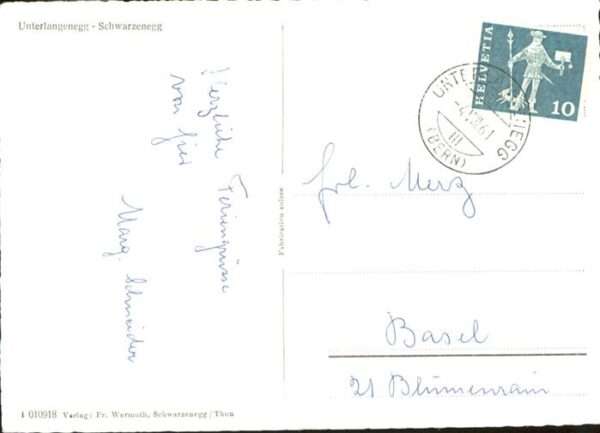 Unterlangenegg - Schwarzenegg
Herzliche Feriengrüsse
von hier
Marg. Schneider
Fabrication suisse
HELVETIA
10
(BERN)
III
Frl. Merz
Basel
21 Blumenrain
1 010918 Verlag: Fr. Warmuth, Schwarzenegg/Thun